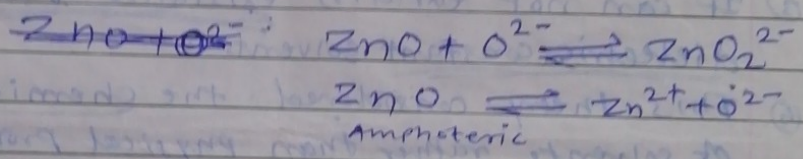 ZnO + O²⁻ ⇌ ZnO₂²⁻
ZnO ⇌ Zn²⁺ + O²⁻
Amphoteric